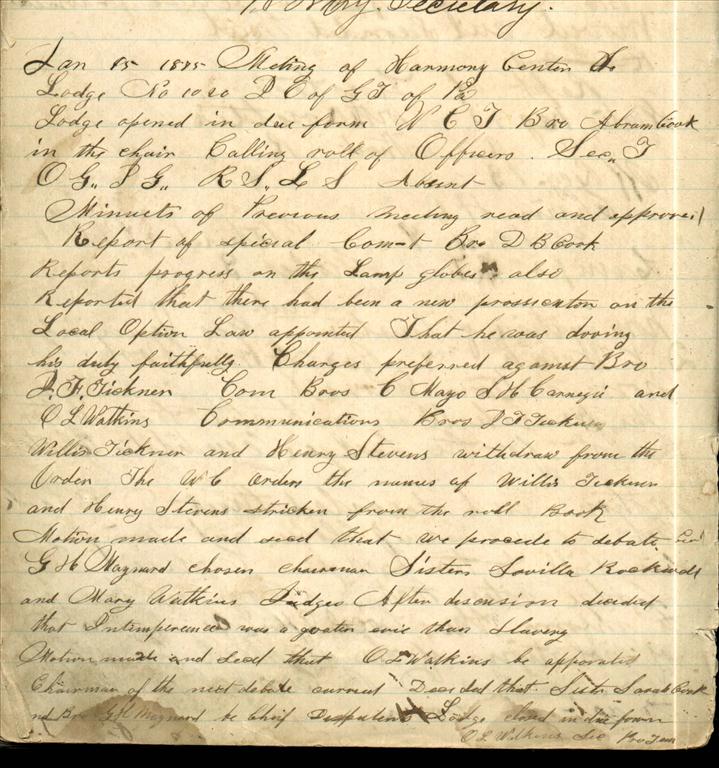 Secretary.
Jan 15 1875 Meting of Harmony Center
Lodge No 1020 of G T of Pa
Lodge opened in due form W C T Bro Abram Cook
in the chair Calling roll of Officers. Sec,, T
O G,, I G,, R S,, L S Absent
Minuets of Previous meeting read and approved
Report of special Com-t Bro D B Cook
Reports progress on the Lamp globes also
Reported that there had been a new prossicuton on the
Local Option Law appointed That he was dooing
his duty faithfully. Charges preferred against Bro
J. F. Tickner Com Bros C Mayo S H Carnegie and
O L Watkins Communications Bros J F Tickner
Willis Tickner and Henry Stevens withdraw from the
Order The W C orders the names of Willis Tickner
and Henry Stevens stricken from the roll Book
Motion made and secd that we procede to debate
G H Maynard chosen chairman Sisters Lovilla Rockwell
and Mary Watkins Judges After discussion decided
that Intemperance was a greater evil than Slavery
Motion made and secd that O L Watkins be appointed
Chairman of the next debate carried Decided that Sister Sarah Cook
and Bro G H Maynard be Chief Disputents Lodge closed in due form
O L Watkins Sec Pro Tem